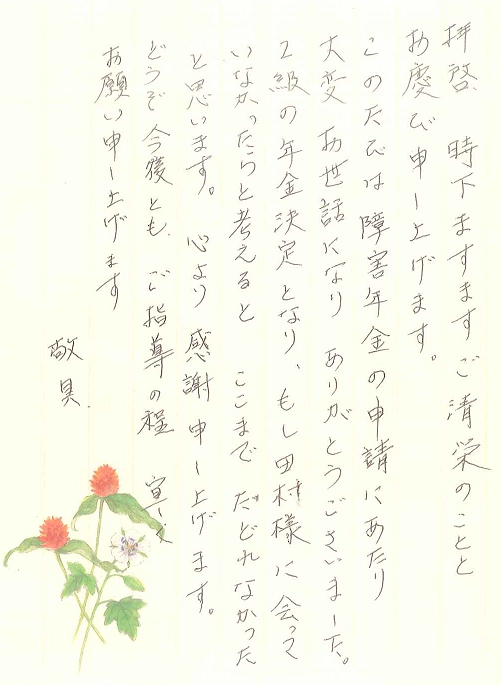 拝啓 時下ますますご清栄のことと
お慶び申し上げます。
このたびは障害年金の申請にあたり
大変お世話になり ありがとうございました。
2級の年金決定となり、もし田村様に会って
いなかったらと考えると ここまで たどれなかった
と思います。 心より感謝申し上げます。
どうぞ今後とも、ご指導の程 宜しく
お願い申し上げます
敬具.